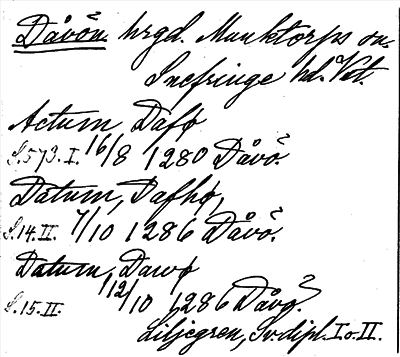 Dåvön. hrgd. Munktorps sn.
Snefringe hd. Vst.
Actum Dafø
S. 573. I. 16/8 1280 Dåvö?
Datum, Dafhø,
S. 14. II. 7/10 1286 Dåvö?
Datum, Dawø
S. 15. II. 12/10 1286 Dåvö?
Liljegren, Sv. dipl. I o. II.